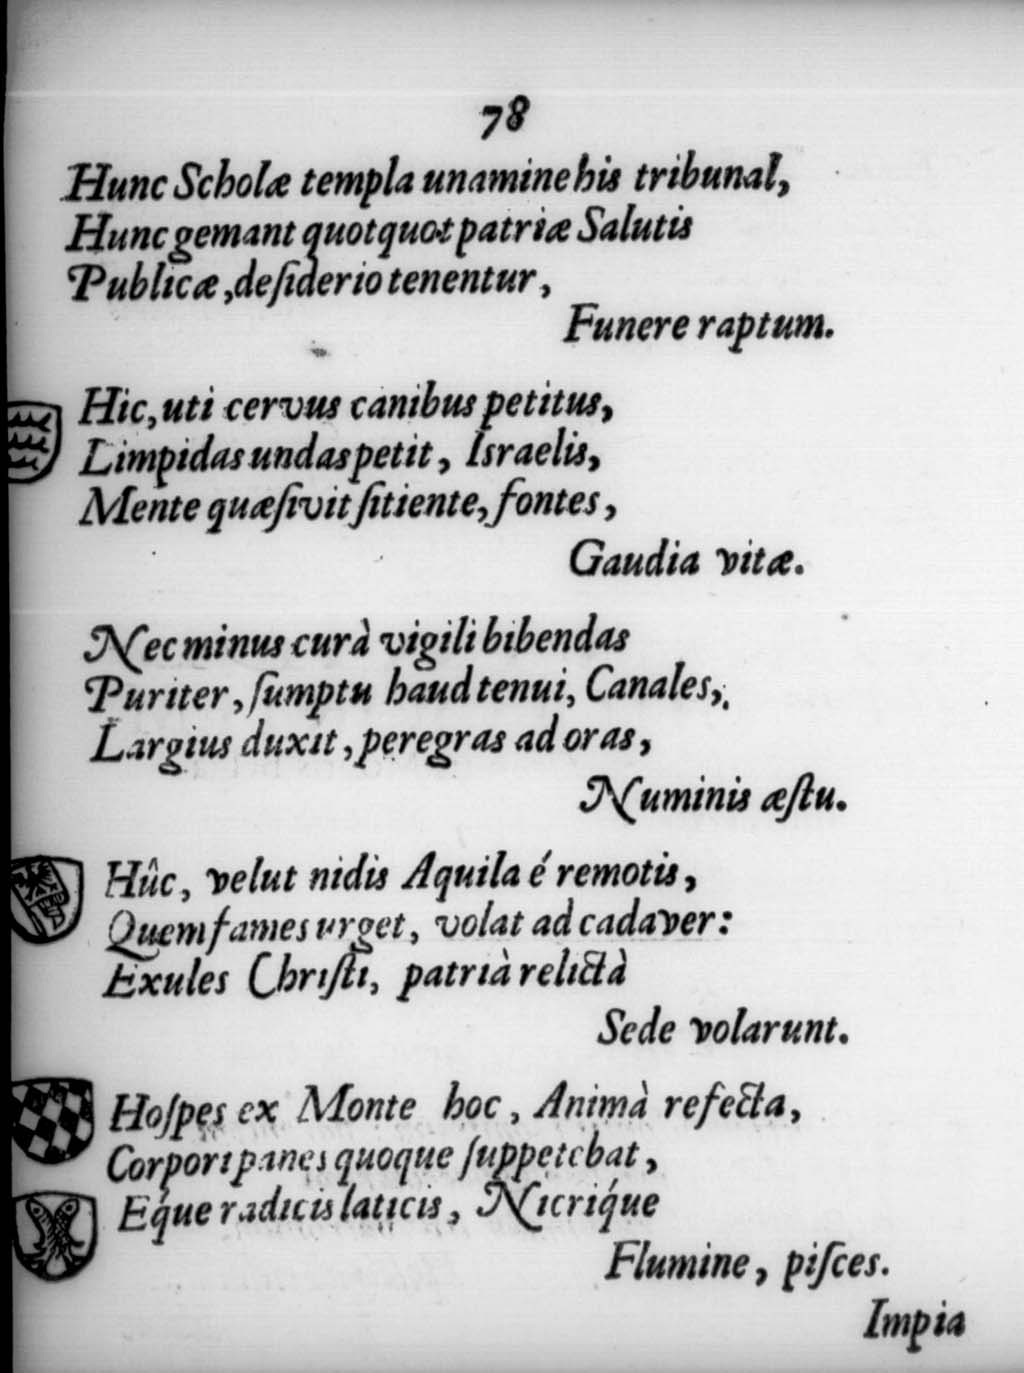 78
Hunc Scholæ templa unamine his tribunal,
Hunc gemant quotquot patriæ Salutis
Publicæ, deſiderio tenentur,
Funere raptum.
Hic, uti cervus canibus petitus,
Limpidas undas petit, Israelis,
Mente quæſivit ſitiente, fontes,
Gaudia vitæ.
Nec minus curà vigili bibendas
Puriter, ſumptu haud tenui, Canales,
Largius duxit, peregras ad oras,
Numinis æſtu.
Hûc, velut nidis Aquila é remotis,
Quem fames urget, volat ad cadaver:
Exules Chriſti, patrià relictà
Sede volarunt.
Hoſpes ex Monte hoc, Animà refecta,
Corpori panes quoque ſuppetebat,
Eq́ue radicis laticis, Nicriq́ue
Flumine, piſces.
Impia